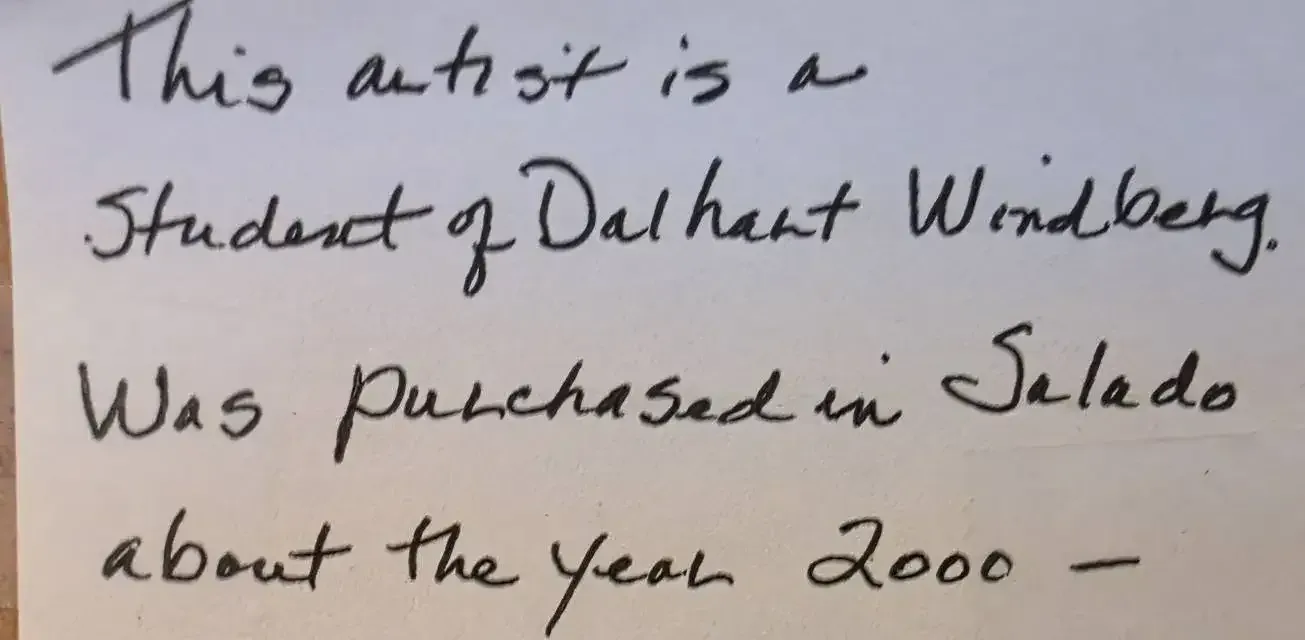 This artist is a
Student of Dalhart Windberg.
Was purchased in Salado
about the year 2000 —